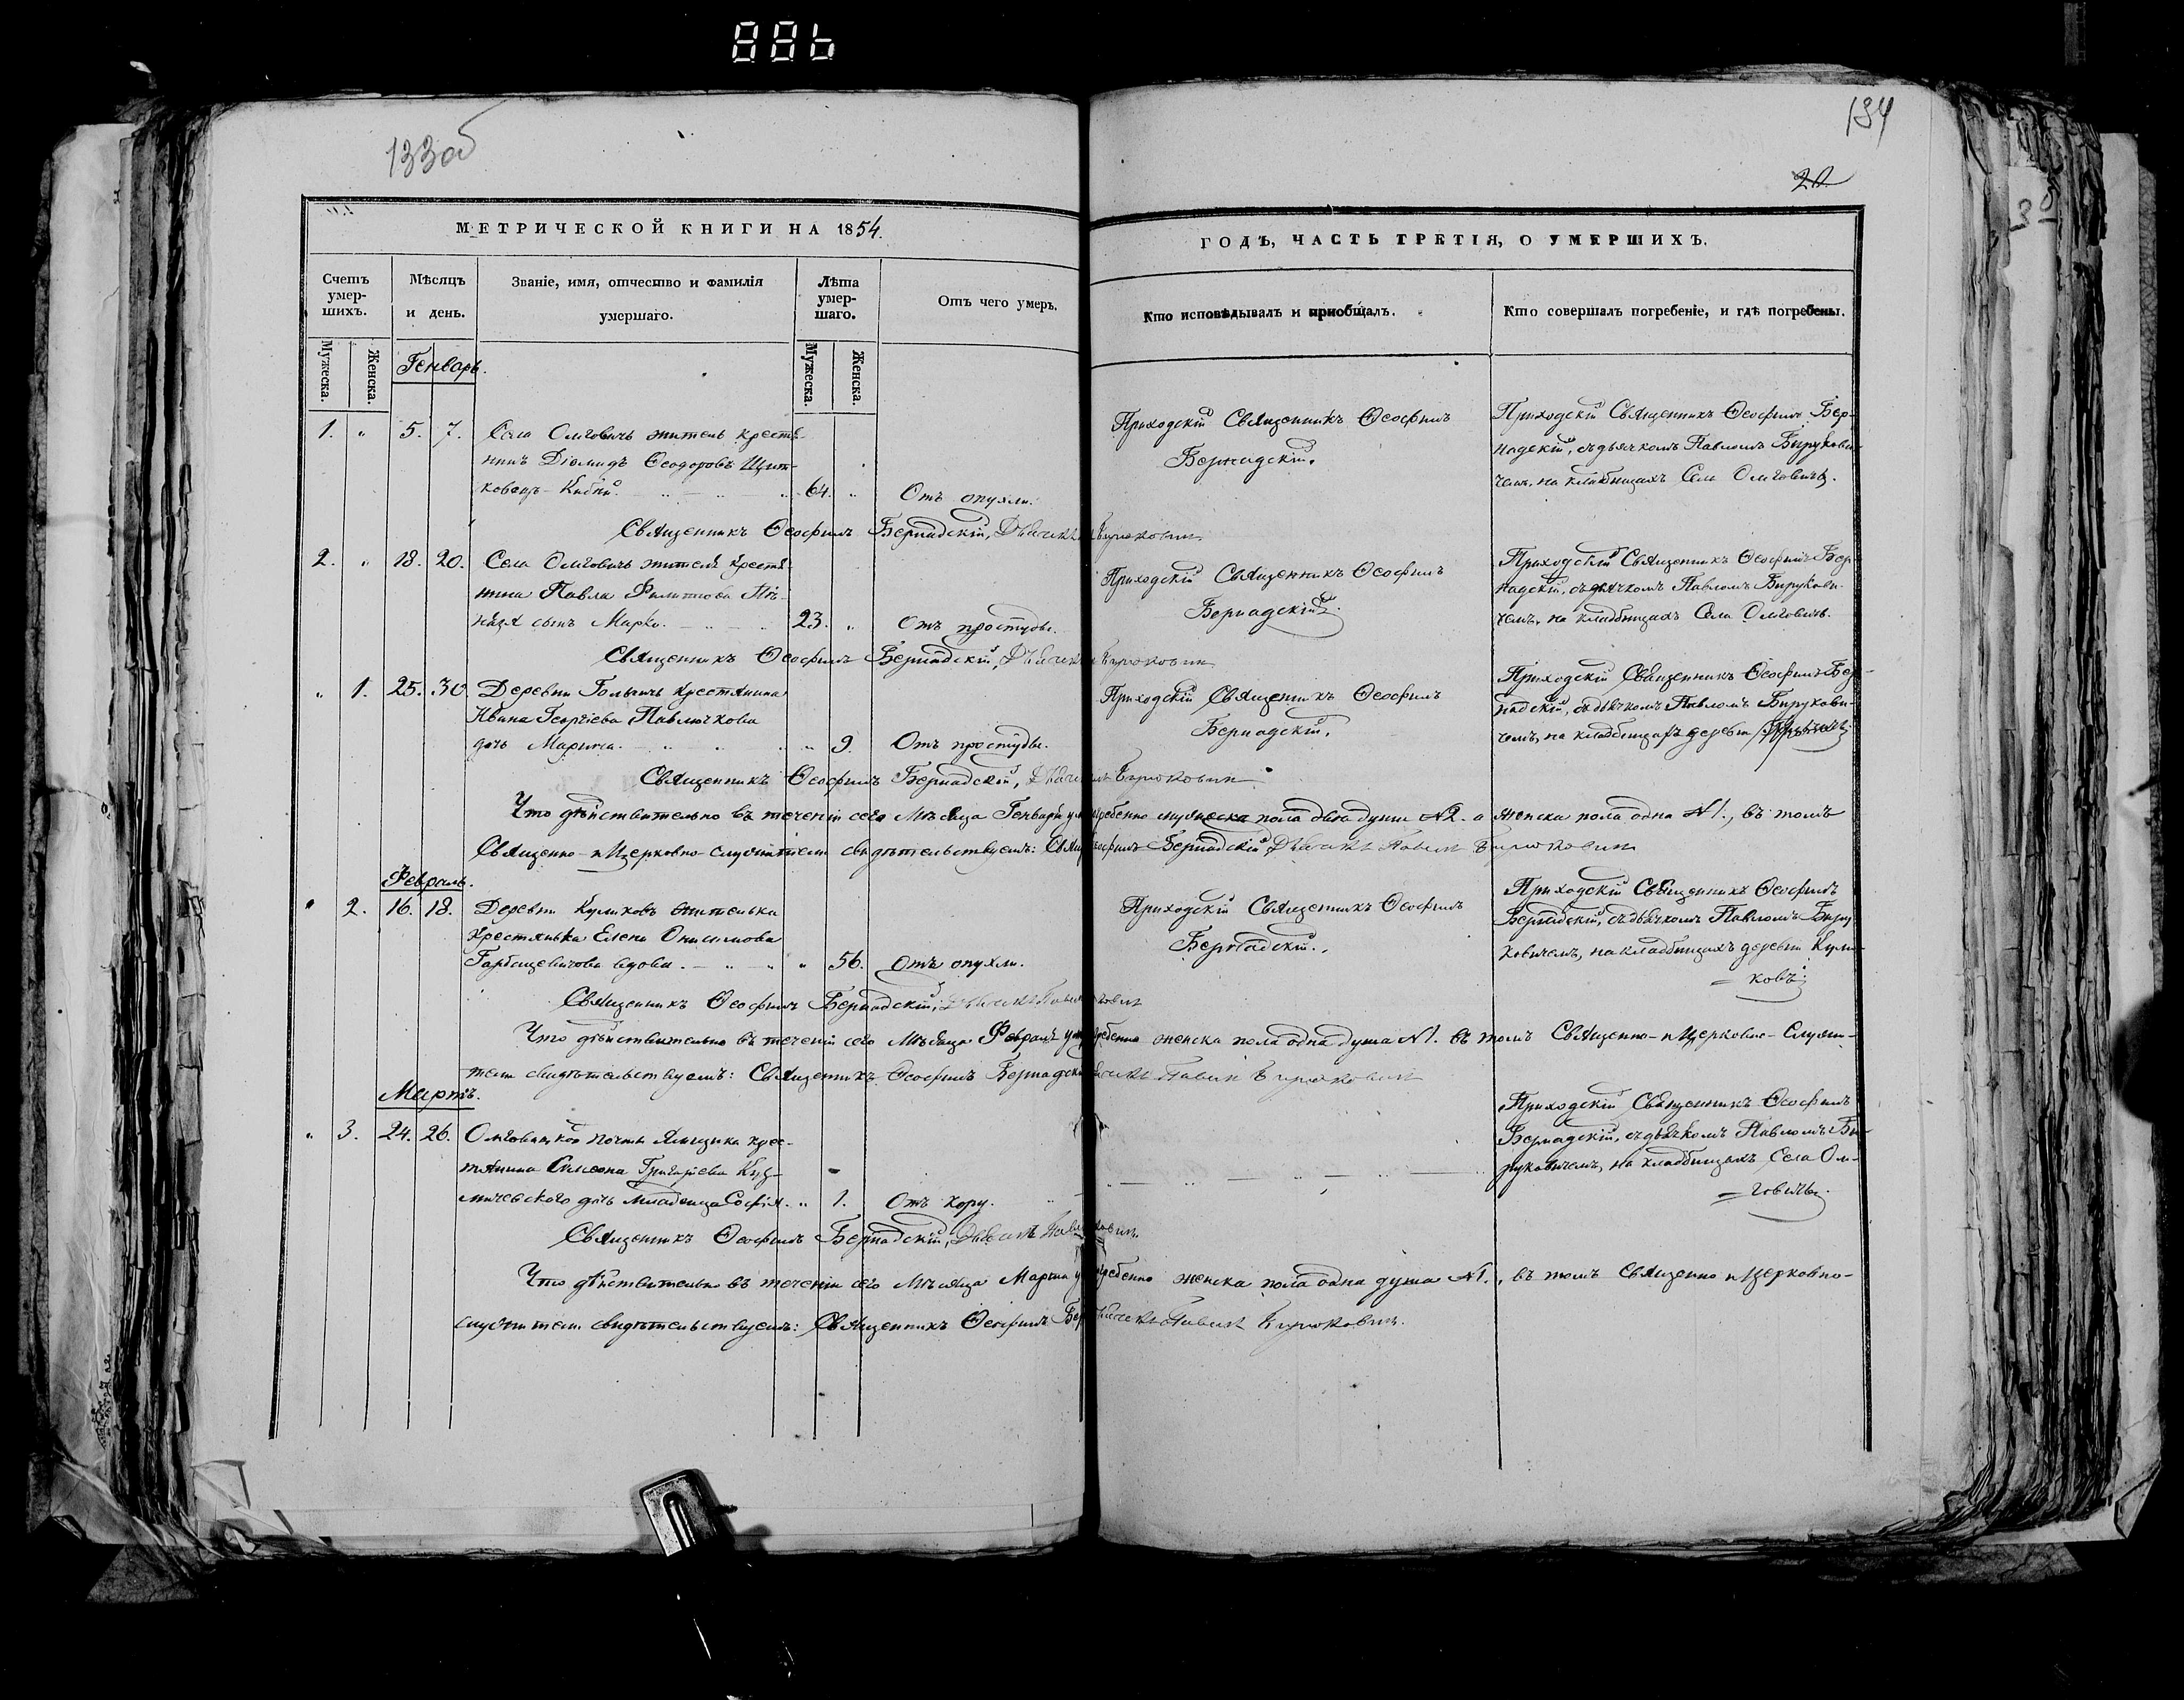 886
133об
134
20
МЕТРИЧЕСКОЙ КНИГИ НА 1854
ГОДЪ, ЧАСТЬ ТРЕТІЯ, О УМЕРШИХЪ.
Счетъ умер-шихъ.
Мѣсяцъ и день.
Званіе, имя, отчество и фамилія умершаго.
Лѣта умер-шаго.
Отъ чего умеръ.
Кто исповѣдывалъ и пріобщалъ.
Кто совершалъ погребеніе, и гдѣ погребены.
Мужеска.
Женска.
Мужеска.
Женска.
Генварь.
1. " 5. 7. Села Олговичь житель крестья-
нинъ Діомидъ Ѳеодоровъ
64. " Отъ опухли.
Приходскій Священникъ Ѳеофилъ
Бернадскій.
Приходскій Священникъ Ѳеофилъ Бер-
надскій, съ дьячкомъ Павломъ Бирукови-
чемъ, на кладбищахъ Села Олговичь.
Священникъ Ѳеофилъ Бернадскій, Дьячекъ Бирюковичь
2. " 18. 20. Села Олговичь жителя крестья-
нина Павла Филипова
сынъ Марко. 23. " Отъ простуды.
Приходскій Священникъ Ѳеофилъ
Бернадскій.
Приходскій Священникъ Ѳеофилъ Бер-
надскій, съ дьячкомъ Павломъ Бирукови-
чемъ, на кладбищахъ Села Олговичь.
Священникъ Ѳеофилъ Бернадскій, Дьячекъ Бирюковичь
" 1. 25. 30. Деревни крестьянина
Ивана Георгіева Павлючкова
дочь Марина. " 9. Отъ простуды.
Приходскій Священникъ Ѳеофилъ
Бернадскій.
Приходскій Священникъ Ѳеофилъ Бер-
надскій, съ дьячкомъ Павломъ Бирукови-
чемъ, на кладбищахъ деревни
Священникъ Ѳеофилъ Бернадскій, Дьячекъ Бирюковичь
Что дѣйствительно въ теченіи сего Мѣсяца Генваря погребенно мужеска пола два души №2. а женска пола одна №1., въ томъ
Священно-и Церковно-служители свидѣтельствуемъ: Ѳеофилъ Бернадскій, Дьячекъ Павелъ Бирюковичь
Февраль.
" 2. 16. 18. Деревни Куликовъ жителька
крестьянка Елена Онисимова
Гарбацевичова вдова. " 56. Отъ опухли.
Приходскій Священникъ Ѳеофилъ
Бернадскій.
Приходскій Священникъ Ѳеофилъ
Бернадскій, съ дьячкомъ Павломъ Биру-
ковичемъ, на кладбищахъ деревни Кули-
ковъ.
Священникъ Ѳеофилъ Бернадскій, Дьячекъ Павелъ
Что дѣйствительно въ теченіи сего Мѣсяца Февраля погребенно женска пола одна душа №1. въ томъ Священно-и Церковно-Служи-
тели свидѣтельствуемъ: Священникъ Ѳеофилъ Бернадскій Павелъ Бирюковичь
Мартъ.
" 3. 24. 26. Олговицкой почты Ямщика крес-
тьянина Симеона Григорьева
дочь младенца Софія. " 1. Отъ кору.
Приходскій Священникъ Ѳеофилъ
Бернадскій, съ дьячкомъ Павломъ Би-
руковичемъ, на кладбищахъ Села Ол-
говичь.
Священникъ Ѳеофилъ Бернадскій, Дьячекъ
Что дѣйствительно въ теченіи сего Мѣсяца Марта погребенно женска пола одна душа №1., въ томъ Священно и Церковно-
служители свидѣтельствуемъ: Священникъ Ѳеофилъ Дьячекъ Павелъ Бирюковичь.